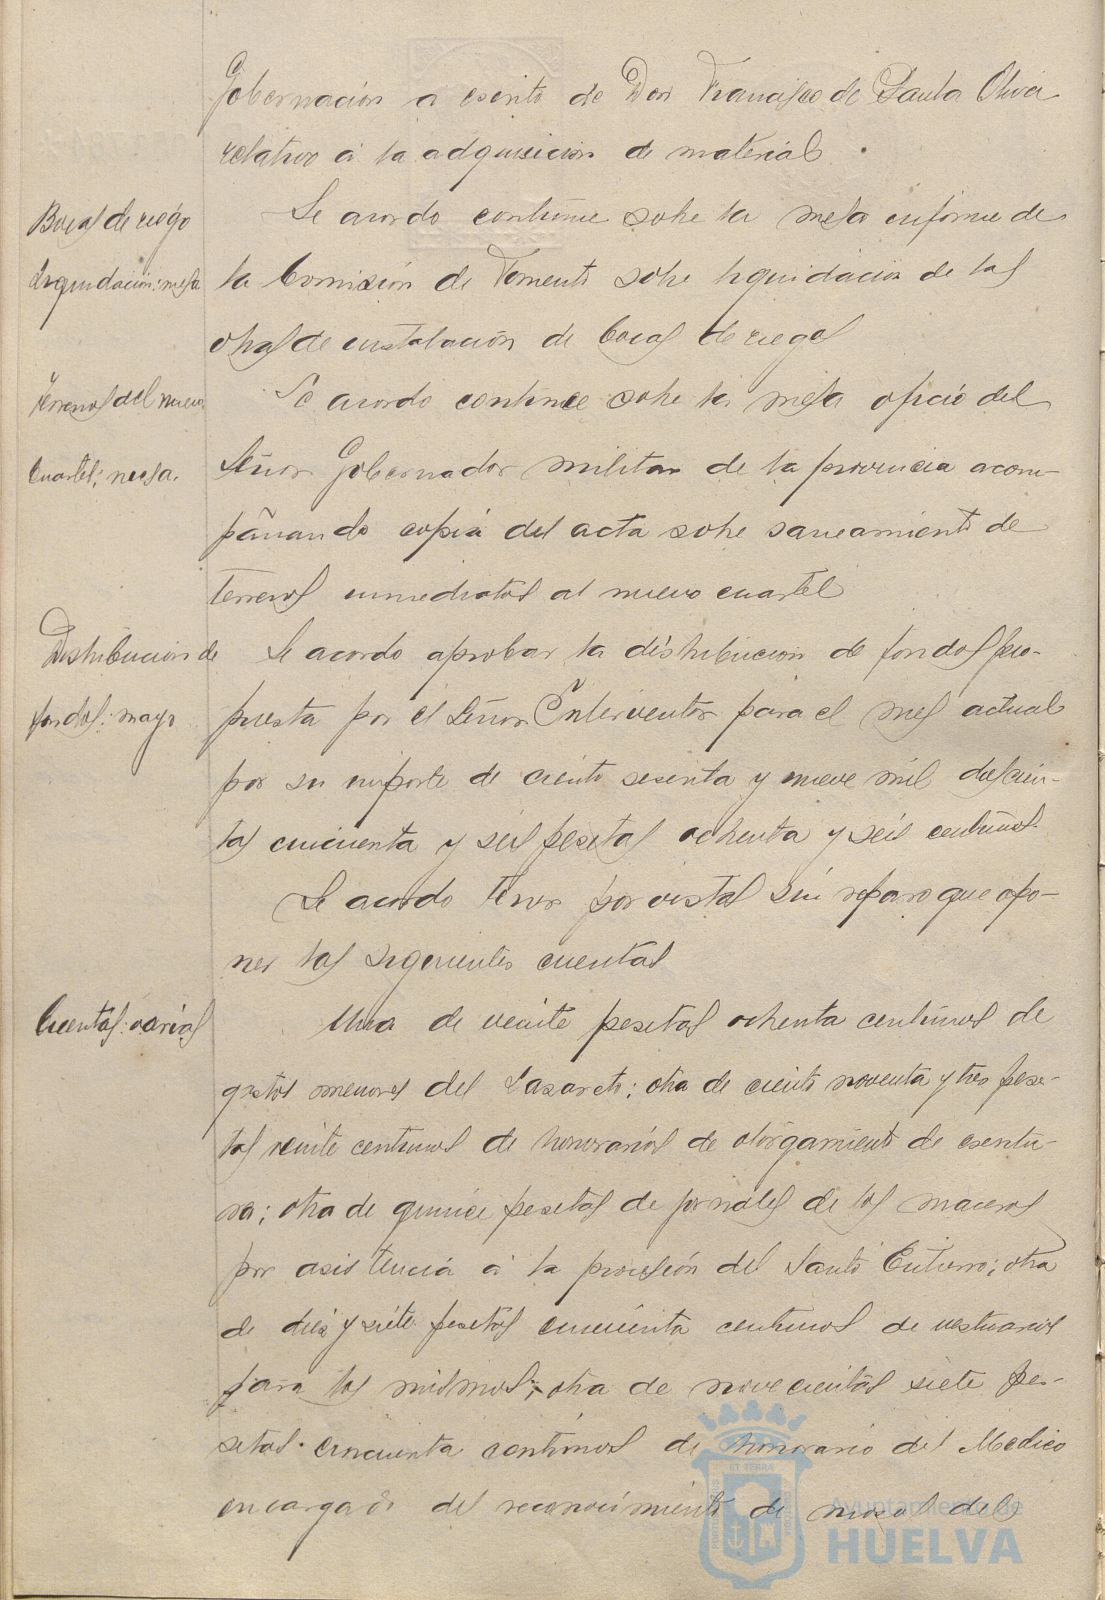 Gobernación a escrito de Don Francisco de Paula Oliva
relativo á la adquisicion de material.
Bocas de riego
Se acordo continue sobre la mesa informe de
liquidacion: mesa
la Comisión de Fomento sobre liquidacion de las
obras de instalación de bocas de riegos
Terrenos del nuevo
Se acordo continue sobre la mesa oficio del
Cuartel; mesa.
Señor Gobernador militar de la provincia acom-
pañando copia del acta sobre saneamiento de
terrenos inmediatos al nuevo cuartel
Distribucion de
Se acordo aprobar la distribucion de fondos pro-
fondos: mayo
puesta por el Señor Interventor para el mes actual
por su importe de ciento sesenta y nueve mil doscien-
tas cincuenta y seis pesetas ochenta y seis centimos.
Se acordo tener por vistas sin reparo que opo-
ner las siguientes cuentas
Cuentas: varias
Una de veinte pesetas ochenta centimos de
gastos menores del Lazareto; otra de ciento noventa y tres pese-
tas veinte centimos de honorarios de otorgamiento de escritu-
ra; otra de quince pesetas de jornales de los maceros
por asistencia á la procesión del Santo Entierro; otra
de diez y siete pesetas cincuenta centimos de vestuarios
para los mismos; otra de novecientas siete pe-
setas cincuenta centimos de honorario del Medico
encargado del reconocimiento de mozos del
ET TERRA
Ayuntamiento de
HUELVA